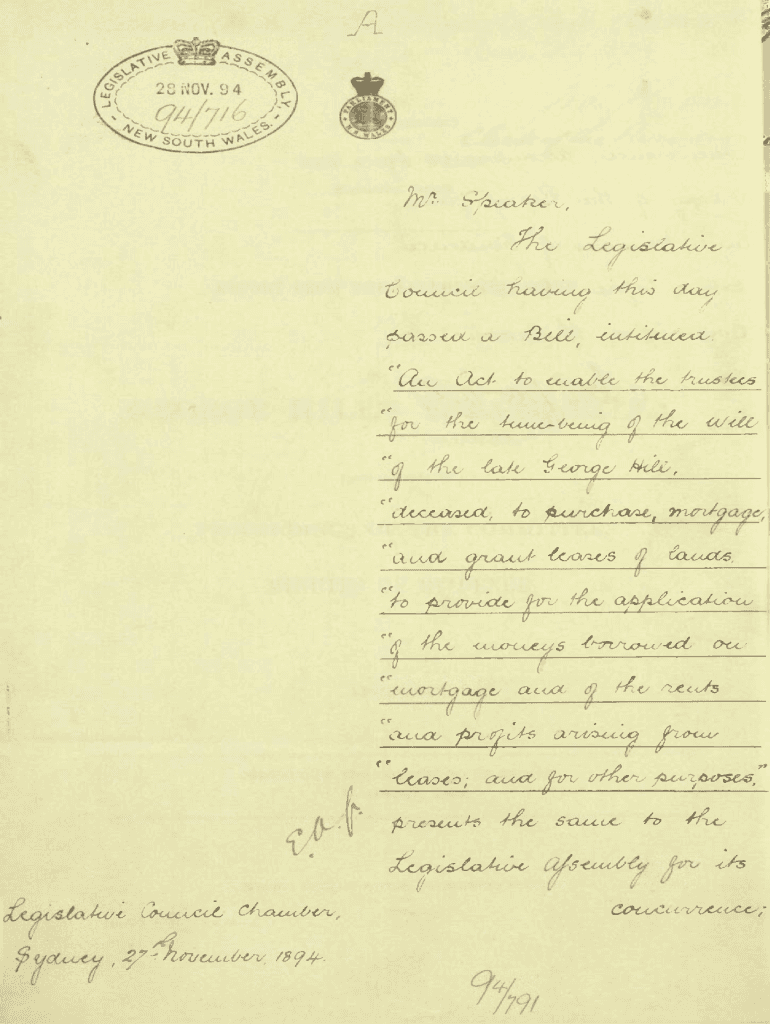 A
LEGISLATIVE ASSEMBLY,
28 NOV. 94
94/716
- NEW SOUTH WALES. -
PARLIAMENT
N.S. WALES
Mr. Speaker,
The Legislative
Council having this day
passed a Bill, intituled
"An Act to enable the trustees
"for the time-being of the Will
"of the late George Hill,
"deceased, to purchase, mortgage,
"and grant leases of lands.
"to provide for the application
"of the moneys borrowed on
"mortgage and of the rents
"and profits arising from
"leases; and for other purposes,"
presents the same to the
Legislative Assembly for its
concurrence;
Legislative Council Chamber,
Sydney, 27th November 1894.
94/791